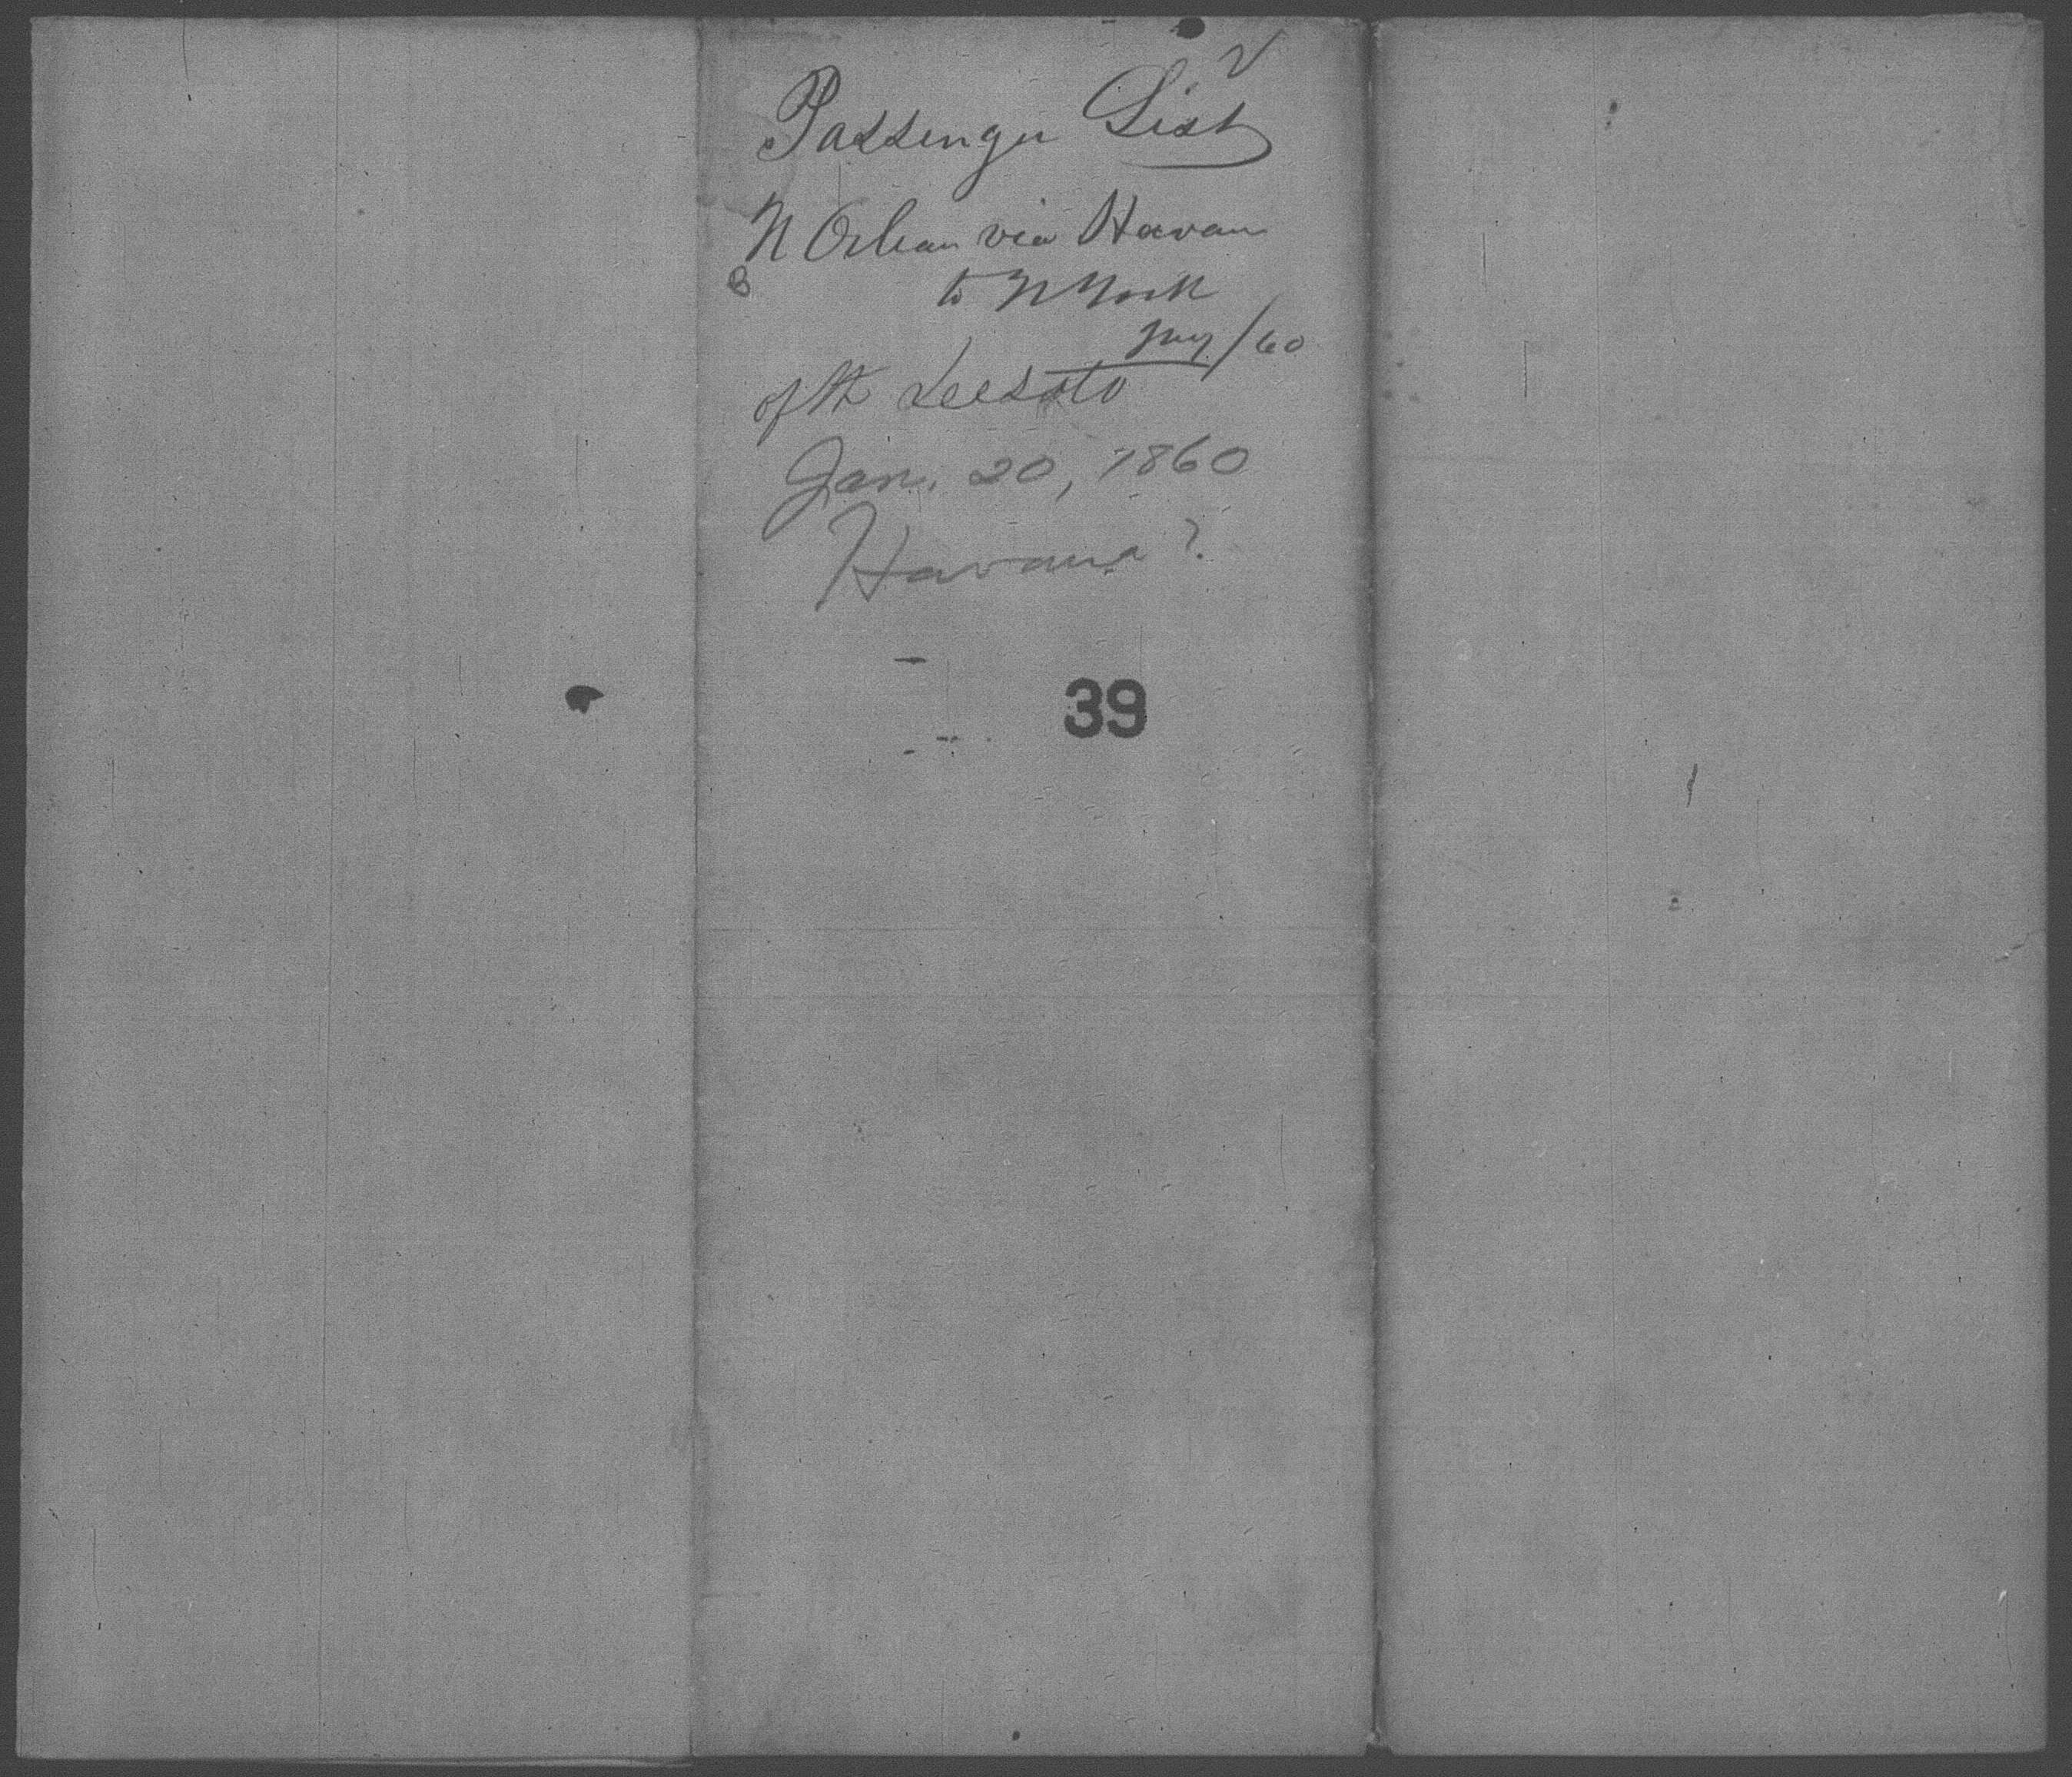 Passenger List
N Orlean via Havan
to N York
/60
of St DeeSoto
Jan. 20, 1860
Havana ?
39